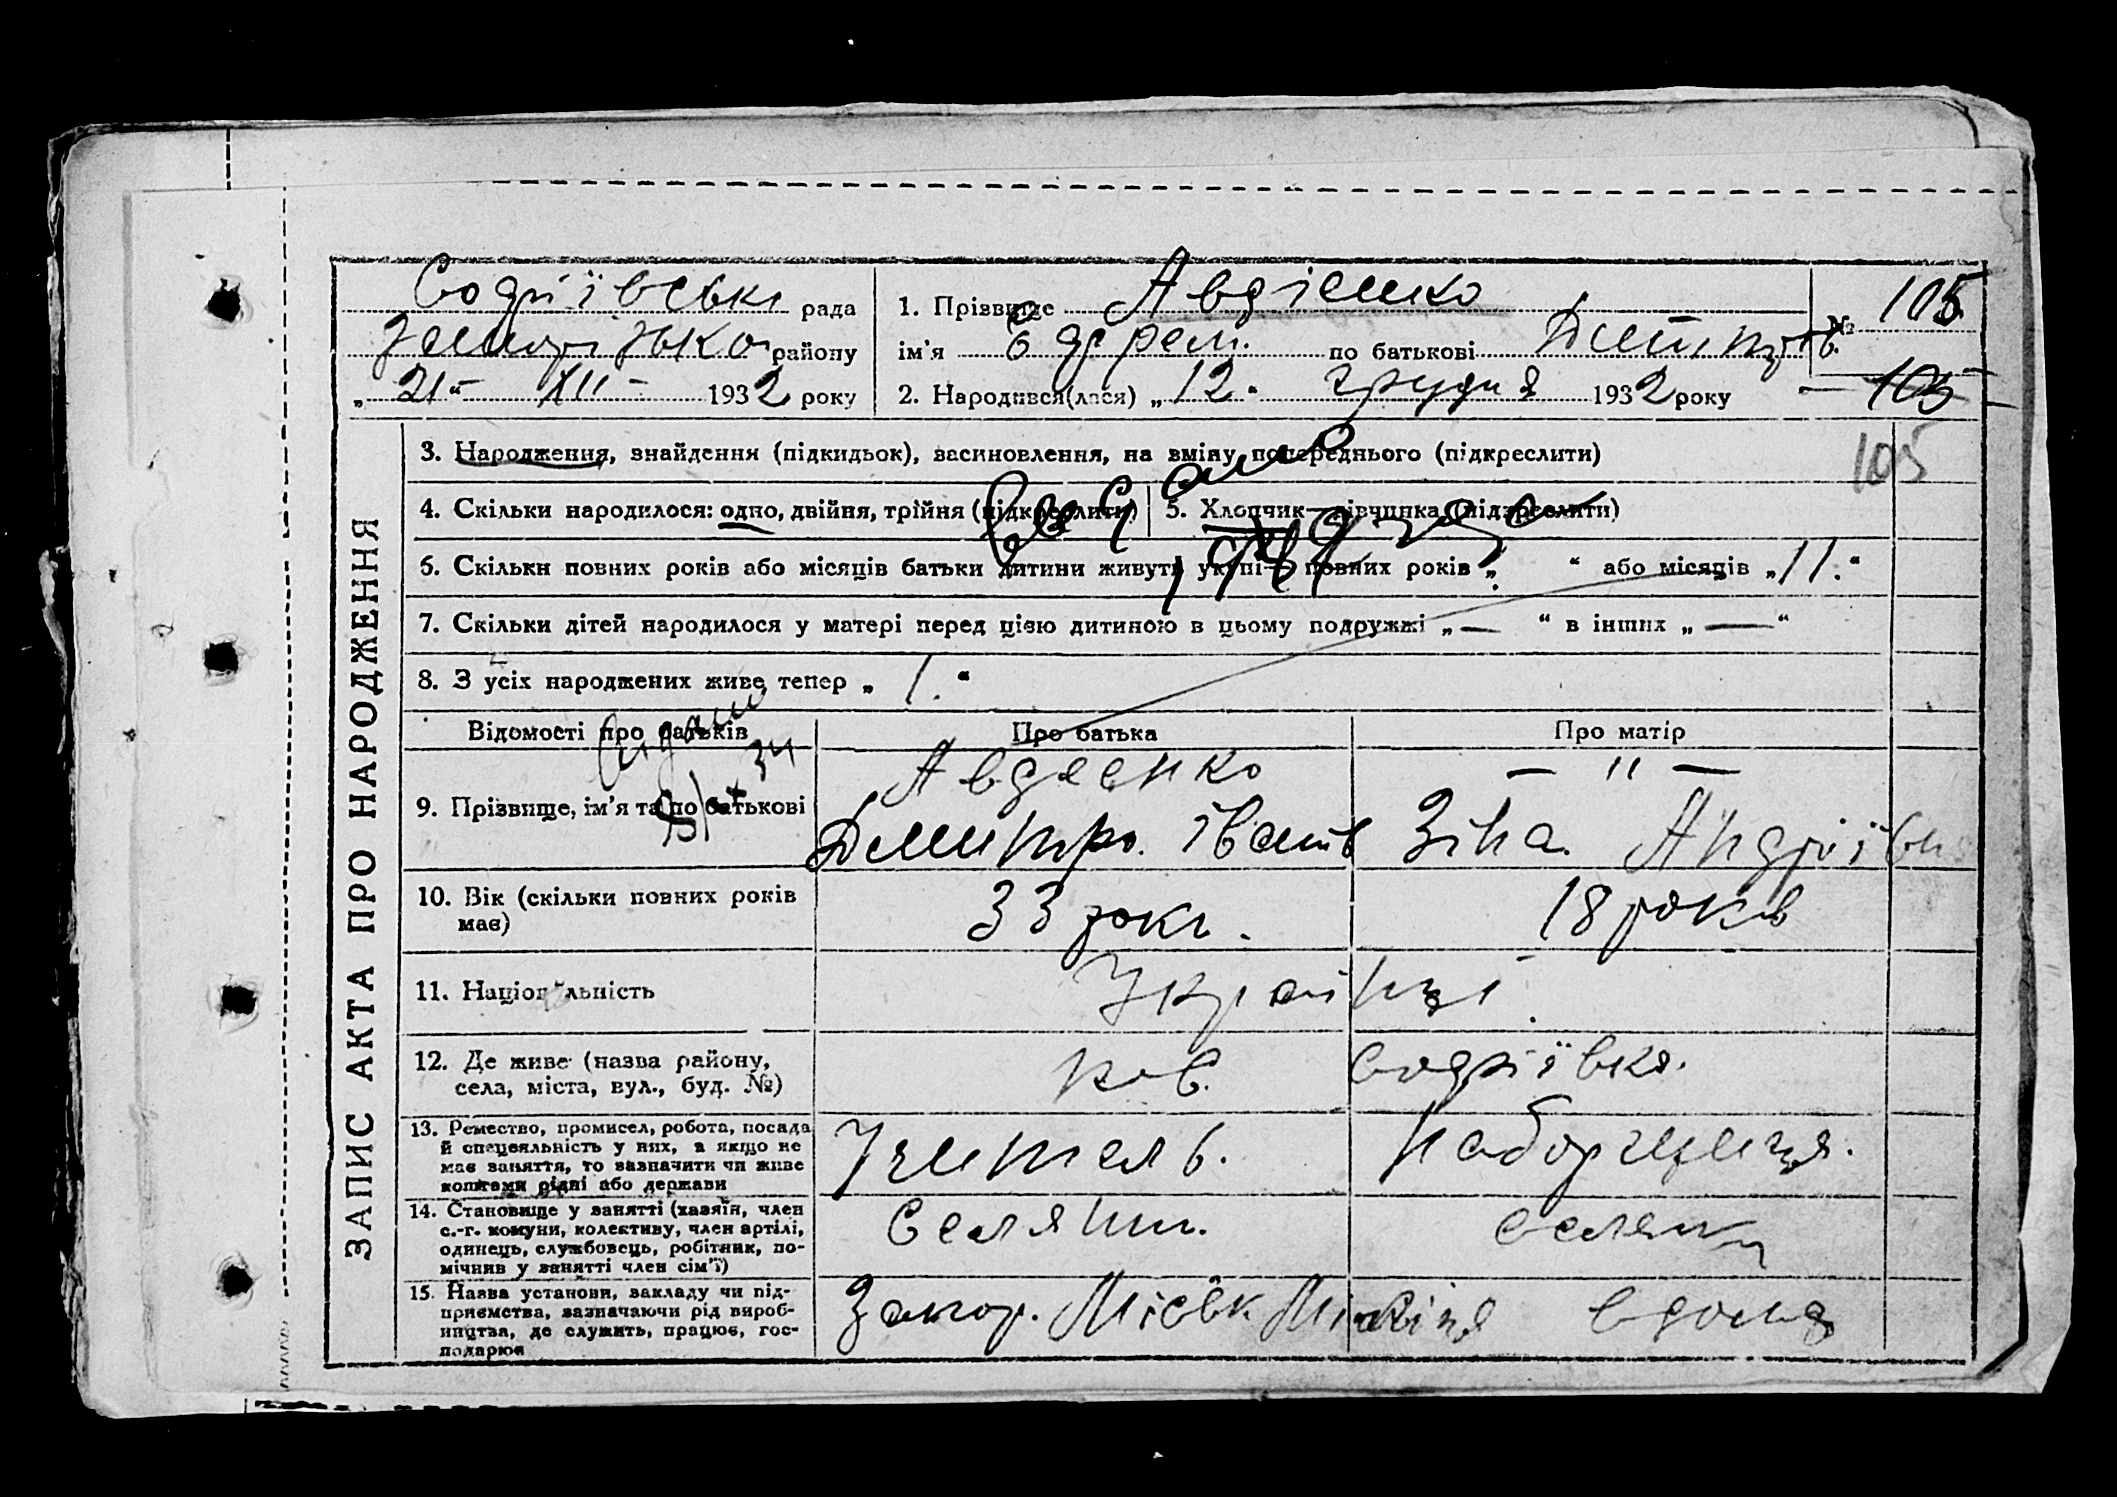 Софіївська рада
Запорізького району
„ 21 “ XII 1932 року
1. Прізвище Авдієнко
ім'я Ефрем. по батькові Дмитров.
2. Народився(лася) „ 12 “ грудня 1932 року
№ 105
105
105
ЗАПИС АКТА ПРО НАРОДЖЕННЯ
3. Народження, знайдення (підкидьок), засиновлення, на зміну попереднього (підкреслити)
4. Скільки народилося: одно, двійня, трійня (підкреслити)
5. Хлопчик—дівчинка (підкреслити)
6. Скільки повних років або місяців батьки дитини живуть укупі— повних років „ “ або місяців „ 11. “
7. Скільки дітей народилося у матері перед цією дитиною в цьому подружжі „ — “ в інших „ — “
8. З усіх народжених живе тепер „ 1. “
Відомості про батьків Про батька Про матір
Видано
34
9. Прізвище, ім'я та по батькові Авдеенко — " —
Дмитро. Іванів Зіна. Андріївн
10. Вік (скільки повних років має) 33 рокі. 18 років
11. Національність Українці.
12. Де живе (назва району, села, міста, вул., буд. №) Софіївка.
13. Ремество, промисел, робота, посада й спеціяльність у них, а якщо не має заняття, то зазначити чи живе коштами рідні або держави Учитель. Наборщиця.
14. Становище у занятті (хазяїн, член с.-г. комуни, колективу, член артілі, одинець, службовець, робітник, помічник у занятті член сім'ї) Селянин. селянка
15. Назва установи, закладу чи підприємства, зазначаючи рід виробництва, де служить, працює, господарює Запор. вдома